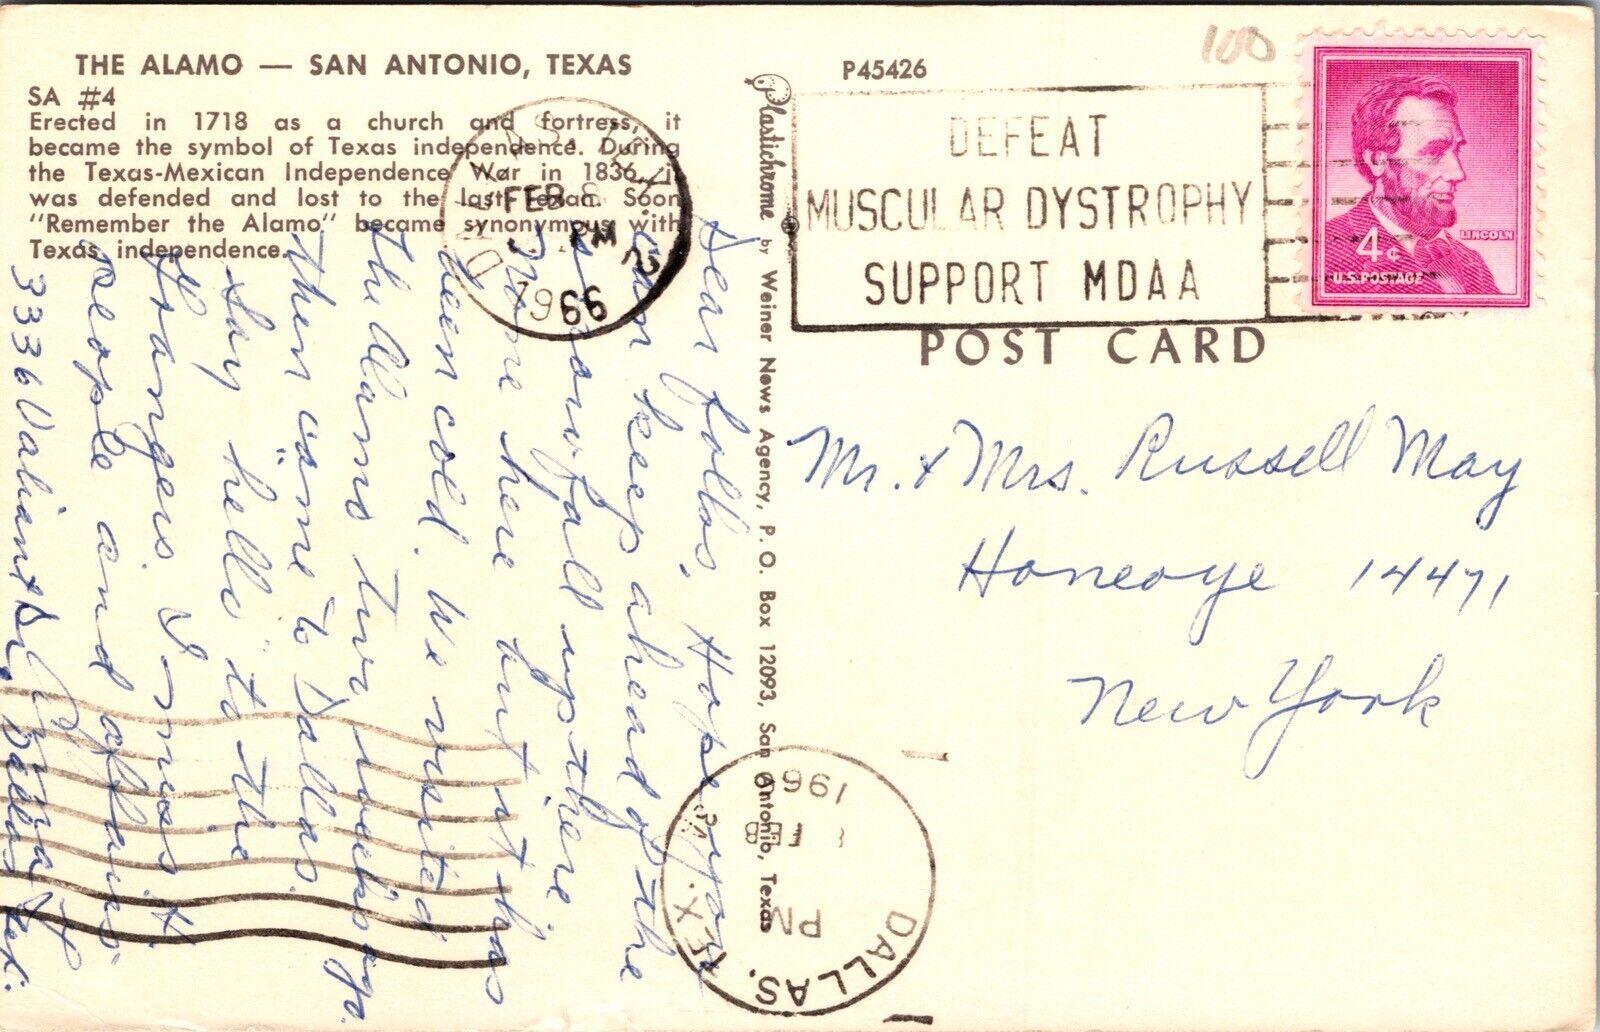 THE ALAMO — SAN ANTONIO, TEXAS
SA #4
Erected in 1718 as a church and fortress, it
became the symbol of Texas independence. During
the Texas-Mexican Independence War in 1836, it
was defended and lost to the last Texan. Soon
"Remember the Alamo" became synonymous with
Texas independence.
Dear folks, Hope you
can keep ahead of the
snowfall up there.
None here but it has
been cold. We visited
the Alamo two weeks ago.
Then came to Dallas.
Say "hello" to the
Grangers. I miss H.
people and affairs.
3336 Valiant Dr., Dallas Tex.
Plastichrome by Weiner News Agency, P. O. Box 12093, San Antonio, Texas
P45426
100
DALLAS, TEX
FEB 8
PM
1966
DEFEAT
MUSCULAR DYSTROPHY
SUPPORT MDAA
LINCOLN
4¢
U.S. POSTAGE
POST CARD
Mr. & Mrs. Russell May
Honeoye 14471
New York
DALLAS, TEX.
PM
FEB
196